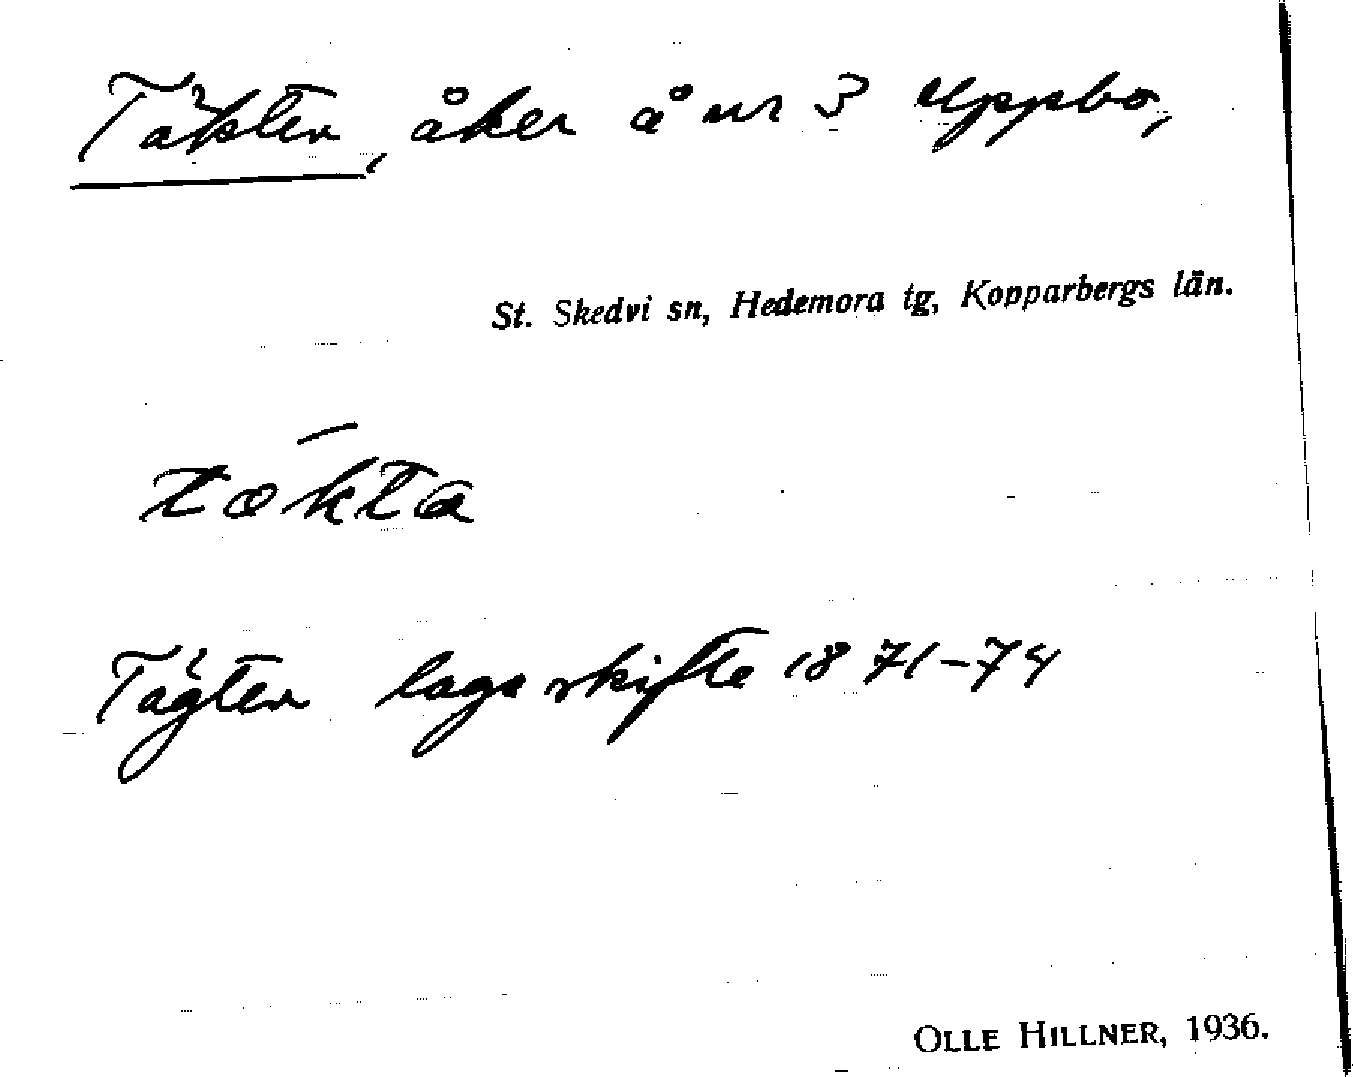 Täkten, åker å nr 3 Uppbo,
St. Skedvi sn, Hedemora tg, Kopparbergs län.
tækta
Tägten laga skifte 1871-74
OLLE HILLNER, 1936.